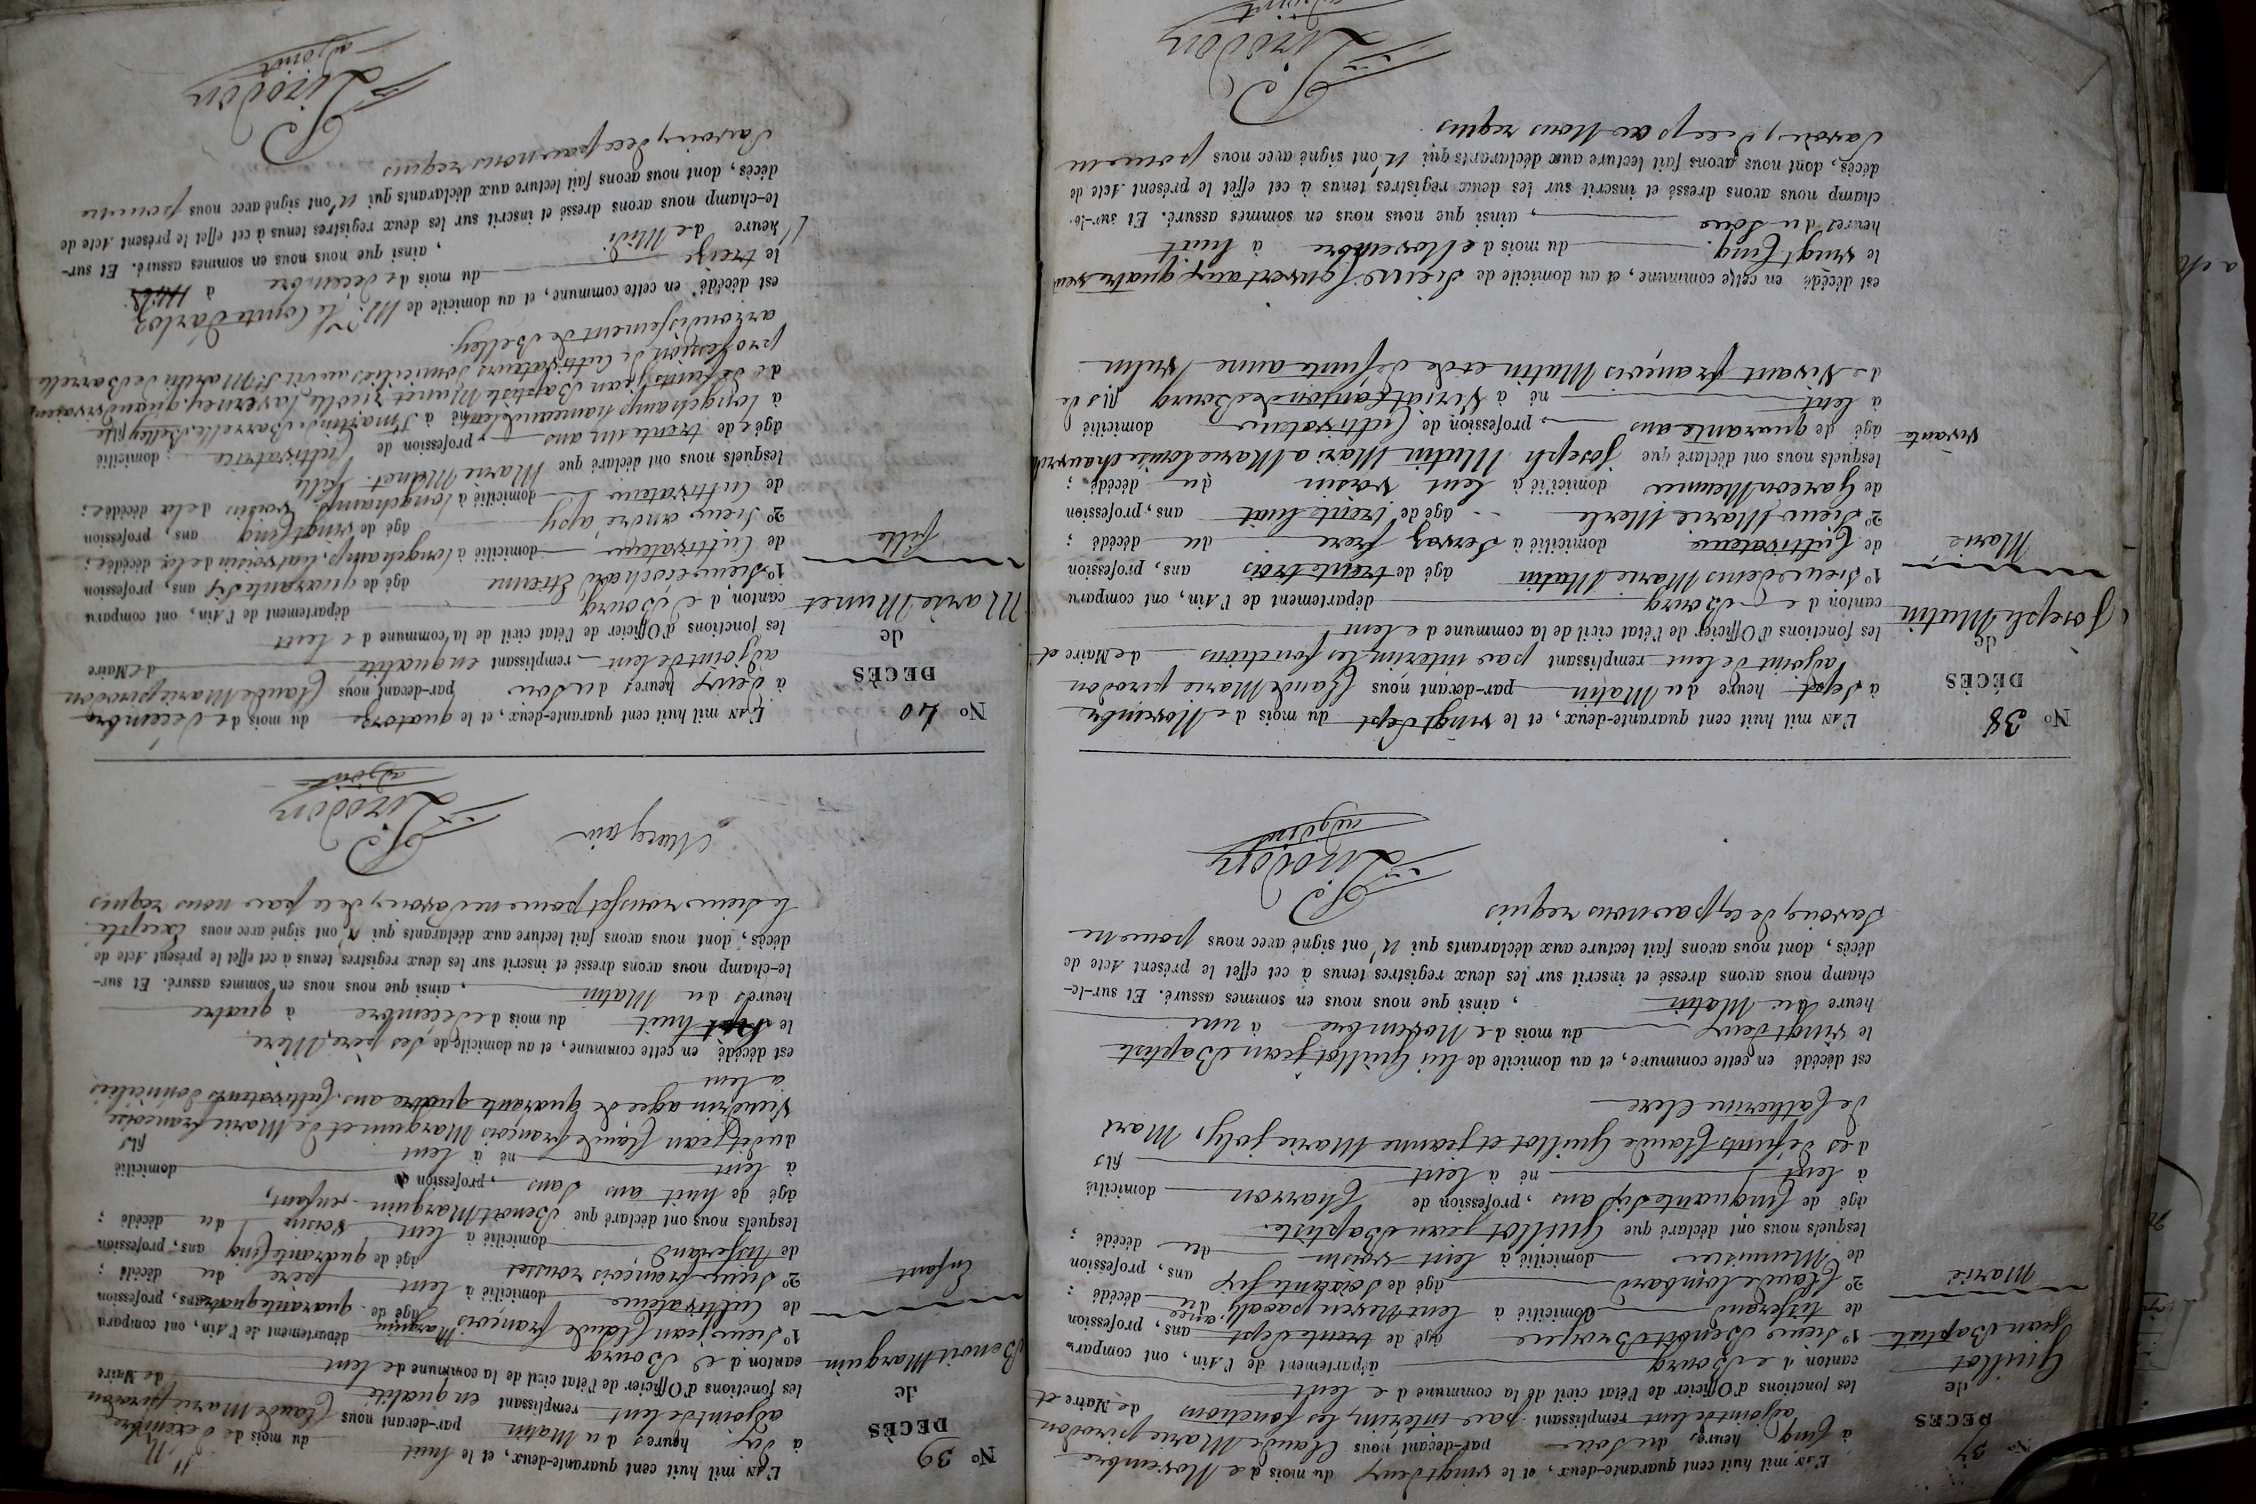 N° 37
DÉCÈS
de
Guillot
Jean Baptiste
Marié
L'AN mil huit cent quarante-deux, et le vingt deux du mois de Novembre
à Cinq heures du Soir par-devant nous Claude Marie pirodon
adjoint de lent remplissant par interim les fonctions de Maire et
les fonctions d'Officier de l'état civil de la commune de lent
canton de Bourg département de l'Ain, ont comparu
1° Sieur Benoit Broyer âgé de trente sept ans, profession
de tisserand domicilié à lent Neveu par alliance du décédé ;
2° Claude lombard âgé de Soixante six ans, profession
de Menuisier domicilié à lent voisin du décédé ;
lesquels nous ont déclaré que Guillot jean Baptiste
âgé de Cinquante six ans, profession de Charron domicilié
à lent né à lent fils
des défunts Claude Guillot et jeanne Marie joly, Mari
de Catherine Clerc
est décédé en cette commune, et au domicile de lui Guillot jean Baptiste
le vingt deux du mois de Novembre à une
heure du Matin , ainsi que nous nous en sommes assuré. Et sur-le-
champ nous avons dressé et inscrit sur les deux registres tenus à cet effet le présent Acte de
décès, dont nous avons fait lecture aux déclarants qui n'ont signé avec nous pour ne
Savoir, de ce par nous requis
Pirodon
adjoint
N° 38
DÉCÈS
de
Joseph Mutin
Marié
L'AN mil huit cent quarante-deux, et le vingt Sept du mois de Novembre
à Sept heure du Matin par-devant nous Claude Marie pirodon
adjoint de lent remplissant par interim les fonctions de Maire et
les fonctions d'Officier de l'état civil de la commune de lent
canton de Bourg département de l'Ain, ont comparu
1° Sieur denis Marie Mutin âgé de trente trois ans, profession
de Cultivateur domicilié à Servas frere du décédé ;
2° Sieur Marie Merle âgé de trente huit ans, profession
de Garcon Meunier domicilié à lent voisin du décédé ;
lesquels nous ont déclaré que joseph Mutin Mari a Marie louise
vivante
âgé de quarante ans profession de Cultivateur domicilié
à lent né à Viriat Canton de Bourg fils de
de Vivant françois Mutin et de défunte anne
est décédé en cette commune, et au domicile de Sieur
le vingt Cinq. du mois de Novembre à huit
heures du Soir , ainsi que nous nous en sommes assuré. Et sur-le-
champ nous avons dressé et inscrit sur les deux registres tenus à cet effet le présent Acte de
décès, dont nous avons fait lecture aux déclarants qui n'ont signé avec nous pour ne
Savoir, de ce par Nous requis
Pirodon
adjoint
N° 39
DÉCÈS
de
Benoit Marguin
Enfant
L'AN mil huit cent quarante-deux, et le huit du mois de décembre
à dix heures du Matin par-devant nous Claude Marie pirodon
adjoint de lent remplissant en qualité de Maire
les fonctions d'Officier de l'état civil de la commune de lent
canton de Bourg département de l'Ain, ont comparu
1° Sieur jean Claude françois Marguin âgé de quarante quatre ans, profession
de Cultivateur domicilié à lent père du décédé ;
2° Sieur françois rousset âgé de quarante Cinq ans, profession
de tisserand domicilié à lent voisin du décédé ;
lesquels nous ont déclaré que Benoit Marguin enfant,
âgé de huit ans , profession domicilié
à lent né à lent fils
dudit jean Claude françois Marguin et de Marie françoise
agée de quarante quatre ans Cultivateurs domiciliés
a lent
est décédé en cette commune, et au domicile de Ses père, Mère.
le huit du mois de décembre à quatre
heures du Matin , ainsi que nous nous en sommes assuré. Et sur-
le-champ nous avons dressé et inscrit sur les deux registres tenus à cet effet le présent Acte de
décès, dont nous avons fait lecture aux déclarants qui n'ont signé avec nous Excepté
le Sieur rousset pour ne Savoir, de ce par nous requis
Marguin
Pirodon
adjoint
N° 40
DÉCÈS
de
Marie Munet
fille
L'AN mil huit cent quarante-deux, et le quatorze du mois de décembre
à deux heures du Soir par-devant nous Claude Marie pirodon
adjoint de lent remplissant en qualité de Maire
les fonctions d'Officier de l'état civil de la commune de lent
canton de Bourg département de l'Ain, ont comparu
1° Sieur Etienne âgé de quarante Six ans, profession
de Cultivateur domicilié à longchamp, voisin de la décédée ;
2° Sieur andré apy âgé de vingt Cinq ans, profession
de Cultivateur domicilié à longchamp, voisin de la décédée ;
lesquels nous ont déclaré que Marie Munet. fille
âgée de trente un ans , profession de Cultivatrice domicilié
à longchamp hameau de lent né à St martin de Barrelle, Belley fille
de défunts jean Baptiste Munet
profession de Cultivateurs domiciliés audit St Martin de Barrelle
arrondissement de Belley.
est décédé en cette commune, et au domicile de Mr. le Comte Darloz
le treize du mois de décembre à
heure de Midi , ainsi que nous nous en sommes assuré. Et sur-
le-champ nous avons dressé et inscrit sur les deux registres tenus à cet effet le présent Acte de
décès, dont nous avons fait lecture aux déclarants qui n'ont signé avec nous pour ne
Savoir, de ce par nous requis
Pirodon
adjoint